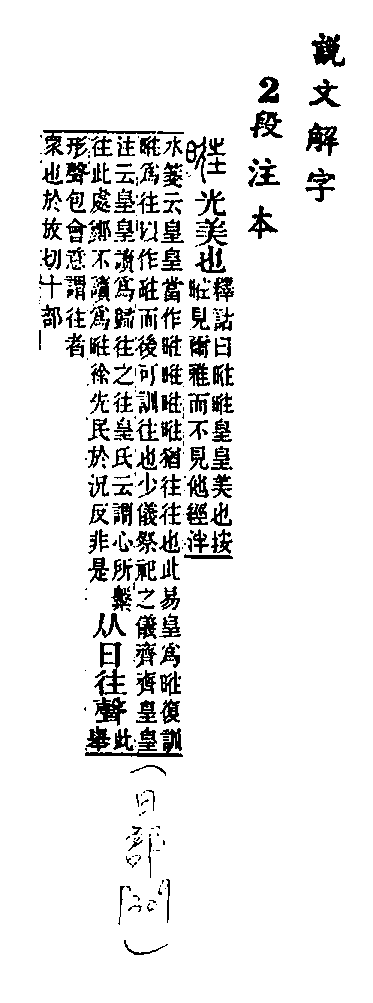 說文解字
2段注本
暀 光美也 釋詁曰暀暀皇皇美也按
暀見爾雅而不見他經泮
水箋云皇皇當作暀暀暀暀猶往往也此易皇爲暀復訓
暀爲往以作暀而後可訓往也少儀祭祀之儀齊齊皇皇
注云皇皇讀爲歸往之往皇氏云謂心所繫
往此處鄭不讀爲暀徐先民於況反非是
从日往聲
此
舉
形聲包會意謂往者
衆也於放切十部
(日部